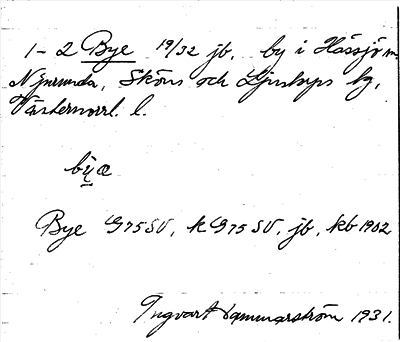 1-2 Bye 19/32 jb, by i Hässjö m.
Njurunda, Sköns och Ljustorps tg,
Västernorrl. l.
by̬æ
Bye G75SV, k G75SV, jb, kb 1902
Ingvart Hammarström 1931.